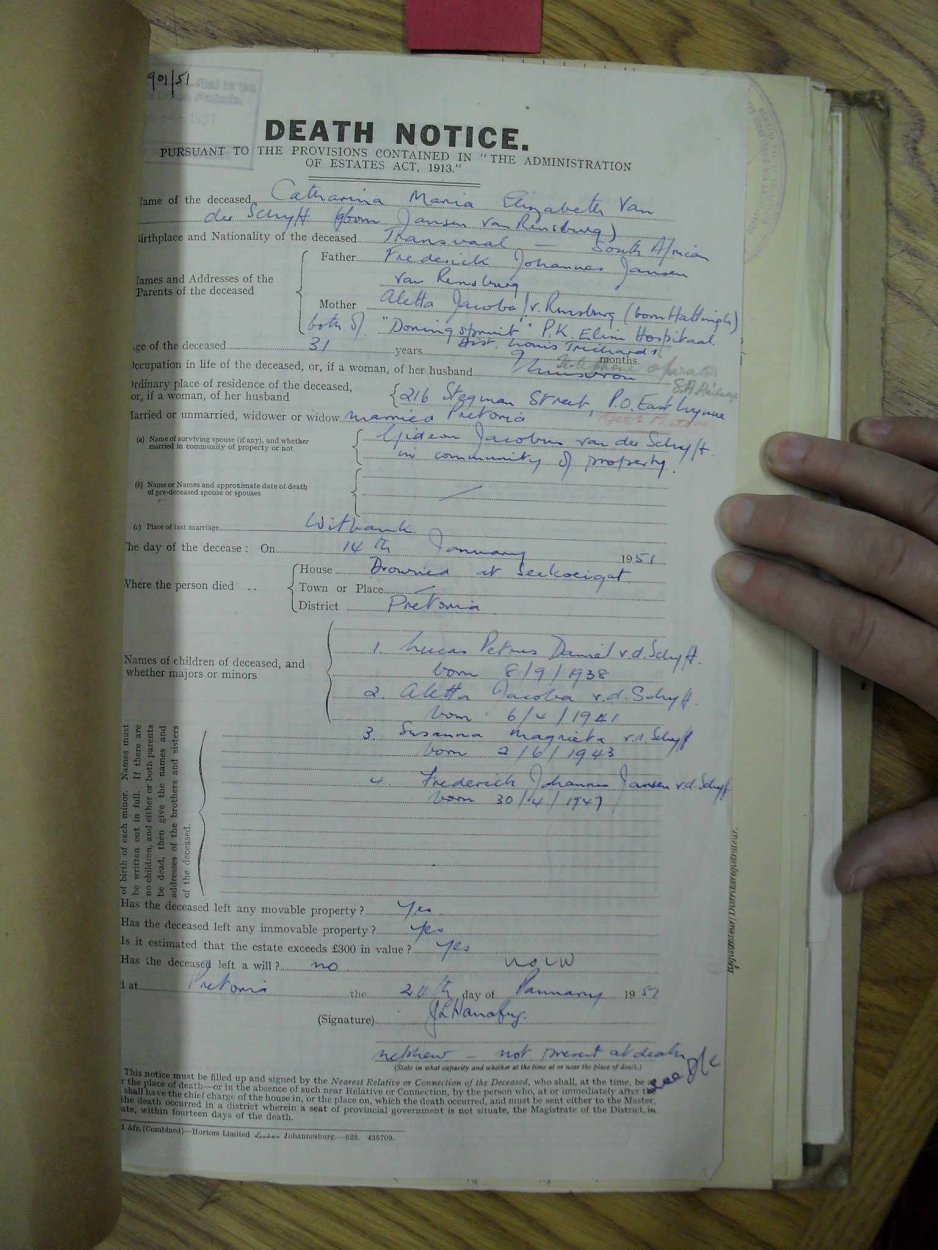 901/51
DEATH NOTICE.
PURSUANT TO THE PROVISIONS CONTAINED IN "THE ADMINISTRATION
OF ESTATES ACT, 1913."
ame of the deceased Catharina Maria Elizabeth Van
der Schyff (born Jansen van Rensburg)
irthplace and Nationality of the deceased Transvaal — South African
ames and Addresses of the Parents of the deceased
Father Frederick Johannes Jansen
van Rensburg
Mother Aletta Jacoba J v. Rensburg (born Hattingh)
both of "Doringspruit" P.K. Elim Hospitaal.
ge of the deceased 31 years 9 months. Dist. Louis Trichardt
ccupation in life of the deceased, or, if a woman, of her husband Telephone operator
S.A. Railways
rdinary place of residence of the deceased,
or, if a woman, of her husband {216 Stegman Street, P.O. East Lynne
arried or unmarried, widower or widow married Pretoria
(a) Name of surviving spouse (if any), and whether
married in community of property or not
Gideon Jacobus van der Schyff.
in community of property.
(b) Name or Names and approximate date of death
of pre-deceased spouse or spouses
(c) Place of last marriage Witbank.
he day of the decease: On 14th January 1951
Where the person died
House Drowned at Seekoeigat
Town or Place
District Pretoria
Names of children of deceased, and
whether majors or minors
1. Lucas Petrus Daniel v.d. Schyff.
born 8/9/1938
2. Aletta Jacoba v.d. Schyff.
born 6/4/1941
3. Susanna Magrieta v.d. Schyff
born 2/6/1943
4. Frederick Johannes Jansen v.d. Schyff
born 30/4/1947
of birth of each minor. Names must
be written out in full. If there are
no children, and either or both parents
be dead, then give the names and
addresses of the brothers and sisters
of the deceased.
Has the deceased left any movable property? Yes.
Has the deceased left any immovable property? Yes
Is it estimated that the estate exceeds £300 in value? Yes
Has the deceased left a will? no
at Pretoria the 24th day of January 1951
(Signature)
nephew – not present at death
(State in what capacity and whether at the time at or near the place of death.)
This notice must be filled up and signed by the Nearest Relative or Connection of the Deceased, who shall, at the time, be a
r the place of death—or in the absence of such near Relative or Connection, by the person who, at or immediately after the
shall have the chief charge of the house in, or the place on, which the death occurred, and must be sent either to the Master,
the death occurred in a district wherein a seat of provincial government is not situate, the Magistrate of the District, in
ate, within fourteen days of the death.
Afr. (Combined)—Hortors Limited Johannesburg.—623. 435709.
Registrateur/Distriksregistrateur.